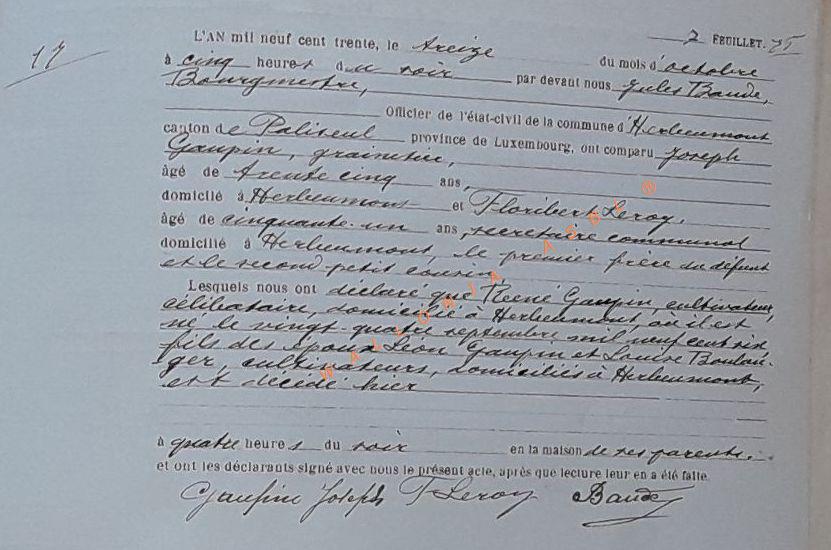 17
2 FEUILLET. 75
L'AN mil neuf cent trente, le treize du mois d'octobre
à cinq heures du soir par devant nous Jules Baude,
Bourgmestre,
Officier de l'état-civil de la commune d'Herbeumont
canton de Paliseul province de Luxembourg, ont comparu Joseph
Gaupin, grainetier,
âgé de trente cinq ans,
domicilié à Herbeumont et Floribert Leroy,
âgé de cinquante-un ans, secrétaire communal
domicilié à Herbeumont, le premier frère du défunt
et le second petit cousin
Lesquels nous ont déclaré que René Gaupin, cultivateur,
célibataire, domicilié à Herbeumont, où il est
né le vingt-quatre septembre mil neuf cent six
fils des époux Léon Gaupin et Louise Boulan-
ger, cultivateurs, domiciliés à Herbeumont,
est décédé hier
à quatre heures du soir en la maison de ses parents.
et ont les déclarants signé avec nous le présent acte, après que lecture leur en a été faite.
Gaupin Joseph F Leroy Baude
WALLONIA ASBL ©